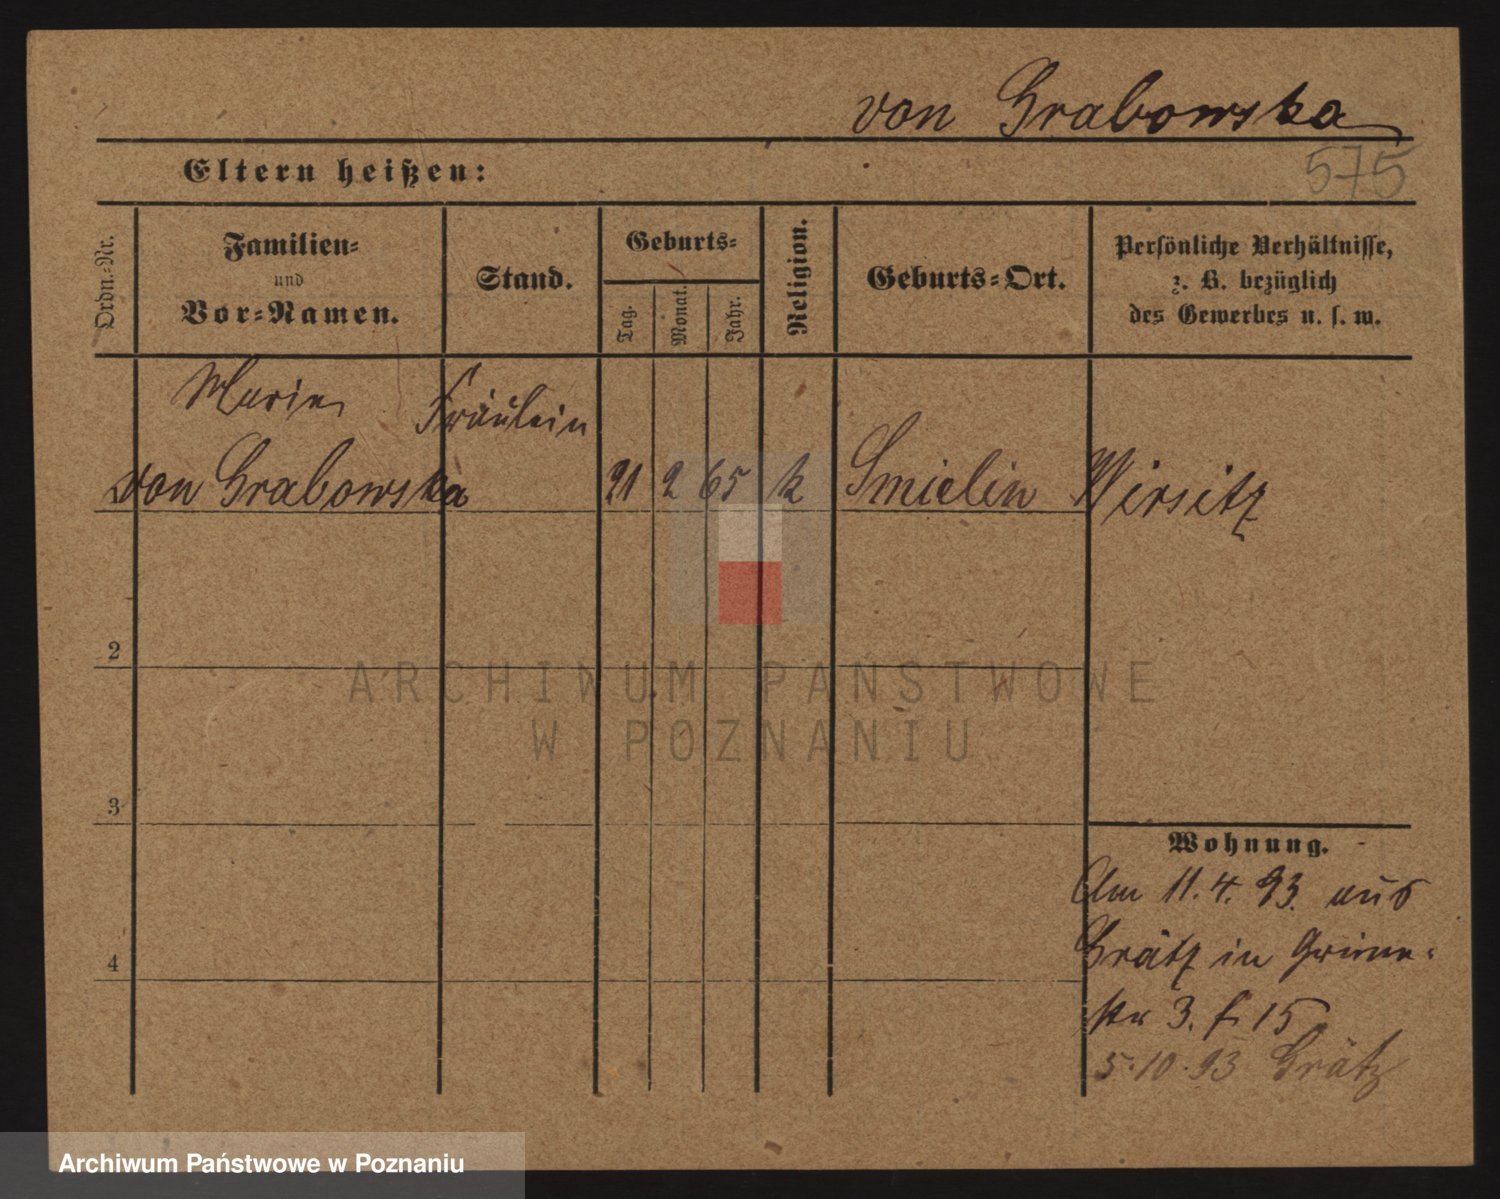 von Grabowska
Eltern heißen:
575
Ordn.-Nr.
Familien-
und
Vor-Namen.
Stand.
Geburts-
Tag.
Monat.
Jahr.
Religion.
Geburts-Ort.
Persönliche Verhältnisse,
z. B. bezüglich
des Gewerbes u. s. w.
Marie Fräulein
von Grabowska 21 2 65 k Smielin Wirsitz
2
3
4
Wohnung.
Am 11.4.93. aus
Grätz in Grüne-
str 3. f. 15
5.10.93 Grätz
ARCHIWUM PAŃSTWOWE
W POZNANIU
Archiwum Państwowe w Poznaniu